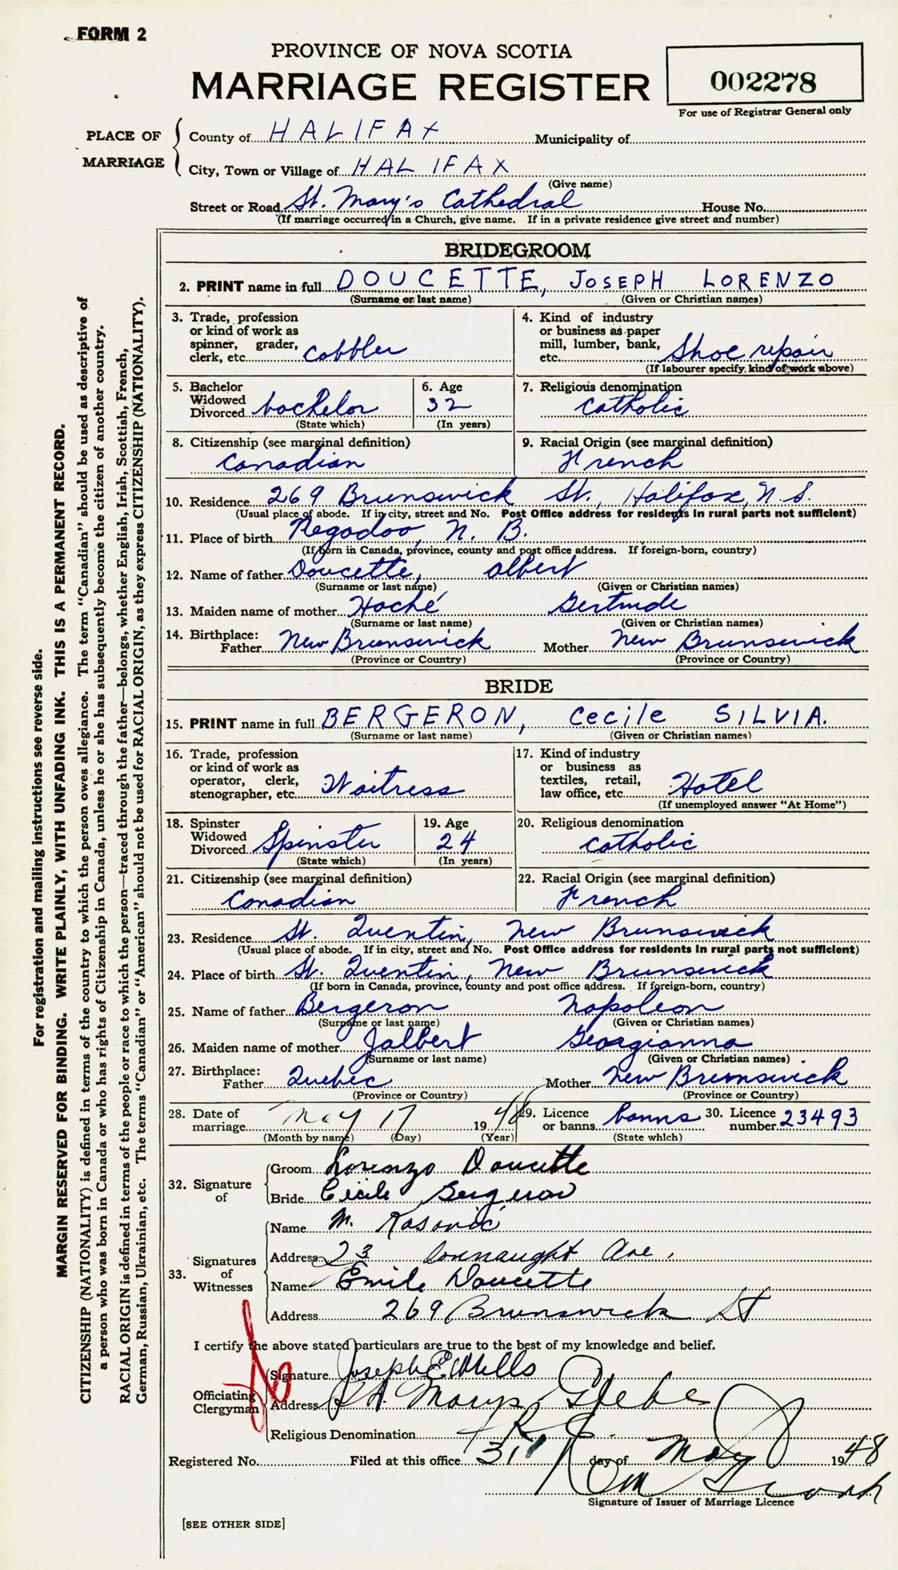 FORM 2
PROVINCE OF NOVA SCOTIA
MARRIAGE REGISTER
002278
For use of Registrar General only
PLACE OF MARRIAGE
County of HALIFAX Municipality of
City, Town or Village of HALIFAX
(Give name)
Street or Road St. Mary's Cathedral House No.
(If marriage occurred in a Church, give name. If in a private residence give street and number)
BRIDEGROOM
2. PRINT name in full DOUCETTE, JOSEPH LORENZO
(Surname or last name) (Given or Christian names)
3. Trade, profession or kind of work as spinner, grader, clerk, etc. Cobbler
4. Kind of industry or business as paper mill, lumber, bank, etc. Shoe repair
(If labourer specify kind of work above)
5. Bachelor Widowed Divorced bachelor
(State which)
6. Age 32
(In years)
7. Religious denomination Catholic
8. Citizenship (see marginal definition) Canadian
9. Racial Origin (see marginal definition) French
10. Residence 269 Brunswick St. Halifax, N.S.
(Usual place of abode. If in city, street and No. Post Office address for residents in rural parts not sufficient)
11. Place of birth Regadoo, N. B.
(If born in Canada, province, county and post office address. If foreign-born, country)
12. Name of father Doucette, albert
(Surname or last name) (Given or Christian names)
13. Maiden name of mother Haché Gertrude
(Surname or last name) (Given or Christian names)
14. Birthplace: Father New Brunswick Mother New Brunswick
(Province or Country) (Province or Country)
BRIDE
15. PRINT name in full BERGERON, Cecile SILVIA.
(Surname or last name) (Given or Christian names)
16. Trade, profession or kind of work as operator, clerk, stenographer, etc. Waitress
17. Kind of industry or business as textiles, retail, law office, etc. Hotel
(If unemployed answer "At Home")
18. Spinster Widowed Divorced Spinster
(State which)
19. Age 24
(In years)
20. Religious denomination Catholic
21. Citizenship (see marginal definition) Canadian
22. Racial Origin (see marginal definition) French
23. Residence St. Quentin, New Brunswick
(Usual place of abode. If in city, street and No. Post Office address for residents in rural parts not sufficient)
24. Place of birth St. Quentin, New Brunswick
(If born in Canada, province, county and post office address. If foreign-born, country)
25. Name of father Bergeron Napoleon
(Surname or last name) (Given or Christian names)
26. Maiden name of mother Jalbert Georgianna
(Surname or last name) (Given or Christian names)
27. Birthplace: Father Quebec Mother New Brunswick
(Province or Country) (Province or Country)
28. Date of marriage May 17 1948
(Month by name) (Day) (Year)
29. Licence or banns banns
(State which)
30. Licence number 23493
32. Signature of
Groom Lorenzo Doucette
Bride Cécile Bergeron
33. Signatures of Witnesses
Name M. Kasovic
Address 23 Connaught Ave.
Name Emile Doucette
Address 269 Brunswick St
I certify the above stated particulars are true to the best of my knowledge and belief.
Officiating Clergyman
Signature Joseph E Mills
Address St. Marys Glebe
Religious Denomination R C
Registered No. Filed at this office 31 day of May 1948
Signature of Issuer of Marriage Licence
[SEE OTHER SIDE]
For registration and mailing instructions see reverse side.
MARGIN RESERVED FOR BINDING. WRITE PLAINLY, WITH UNFADING INK. THIS IS A PERMANENT RECORD.
CITIZENSHIP (NATIONALITY) is defined in terms of the country to which the person owes allegiance. The term "Canadian" should be used as descriptive of
a person who was born in Canada or who has rights of Citizenship in Canada, unless he or she has subsequently become the citizen of another country.
RACIAL ORIGIN is defined in terms of the people or race to which the person—traced through the father—belongs, whether English, Irish, Scottish, French,
German, Russian, Ukrainian, etc. The terms "Canadian" or "American" should not be used for RACIAL ORIGIN, as they express CITIZENSHIP (NATIONALITY).